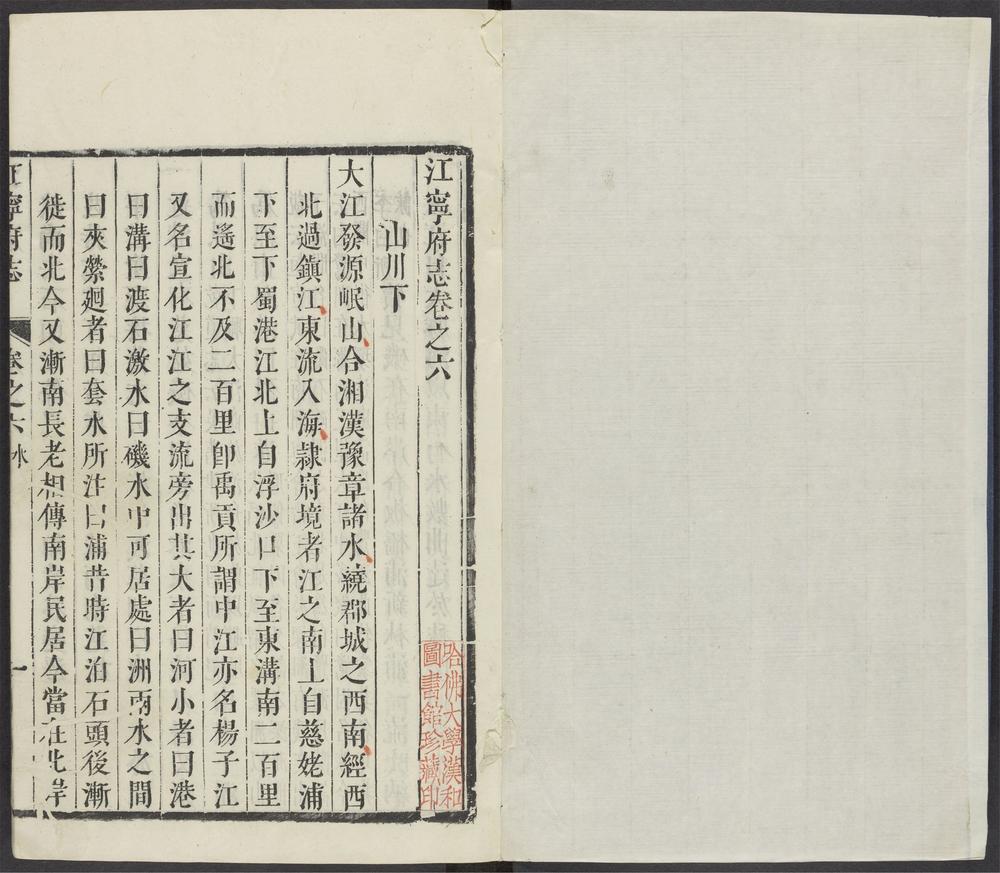 江寧府志卷之六
山川下
大江發源岷山合湘漢豫章諸水繞郡城之西南經西
北過鎮江東流入海隸府境者江之南上自慈姥浦
下至下蜀港江北上自浮沙口下至東溝南二百里
而遙北不及二百里卽禹貢所謂中江亦名楊子江
又名宣化江江之支流旁出其大者曰河小者曰港
曰溝曰渡石激水曰磯水中可居處曰洲兩水之間
曰夾縈廻者曰套水所注曰浦昔時江泊石頭後漸
徙而北今又漸南長老相傳南岸民居今當在北岸
江寧府志 卷之六 水 一
哈佛大學漢和
圖書館珍藏印